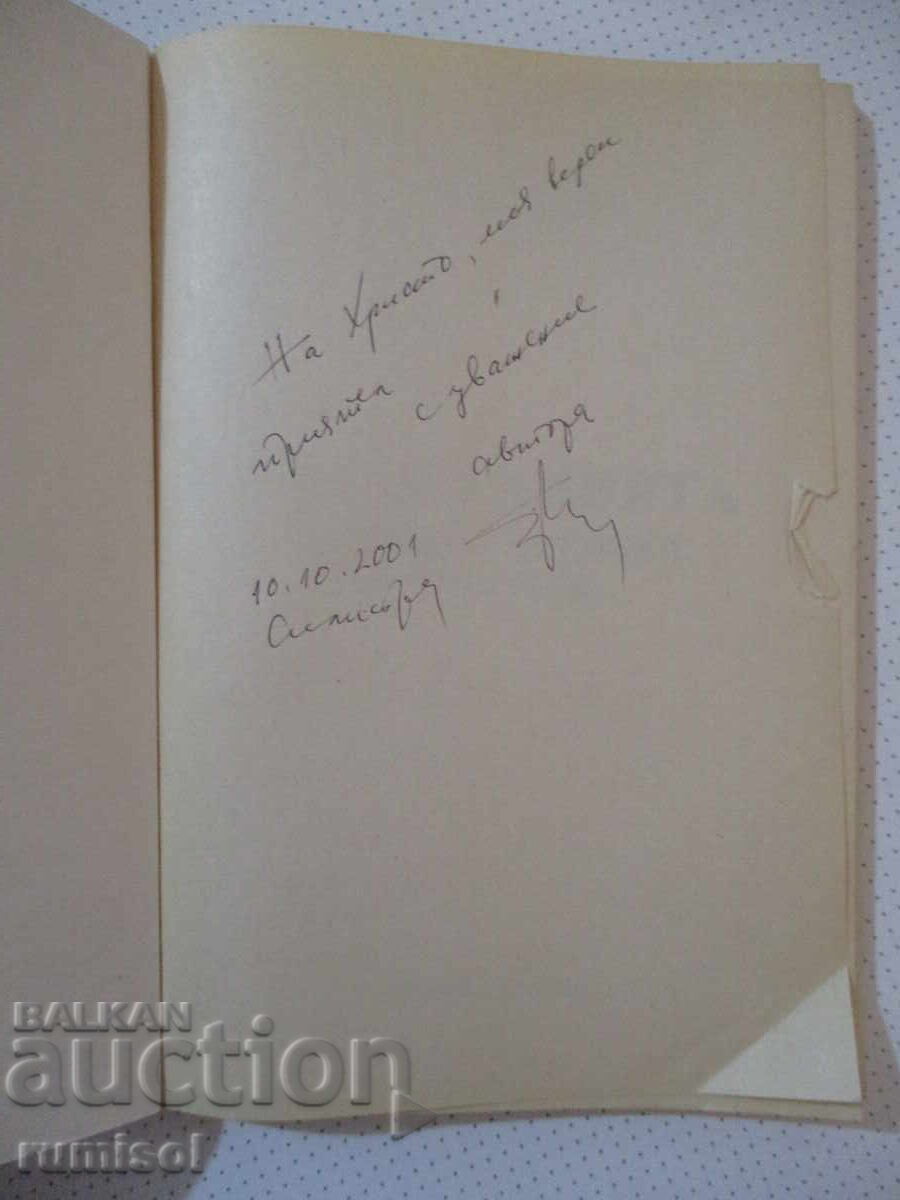 На Христо, моя верен
приятел,
с уважение
автора
10.10.2001
Силистра
BALKAN
auction
rumisol